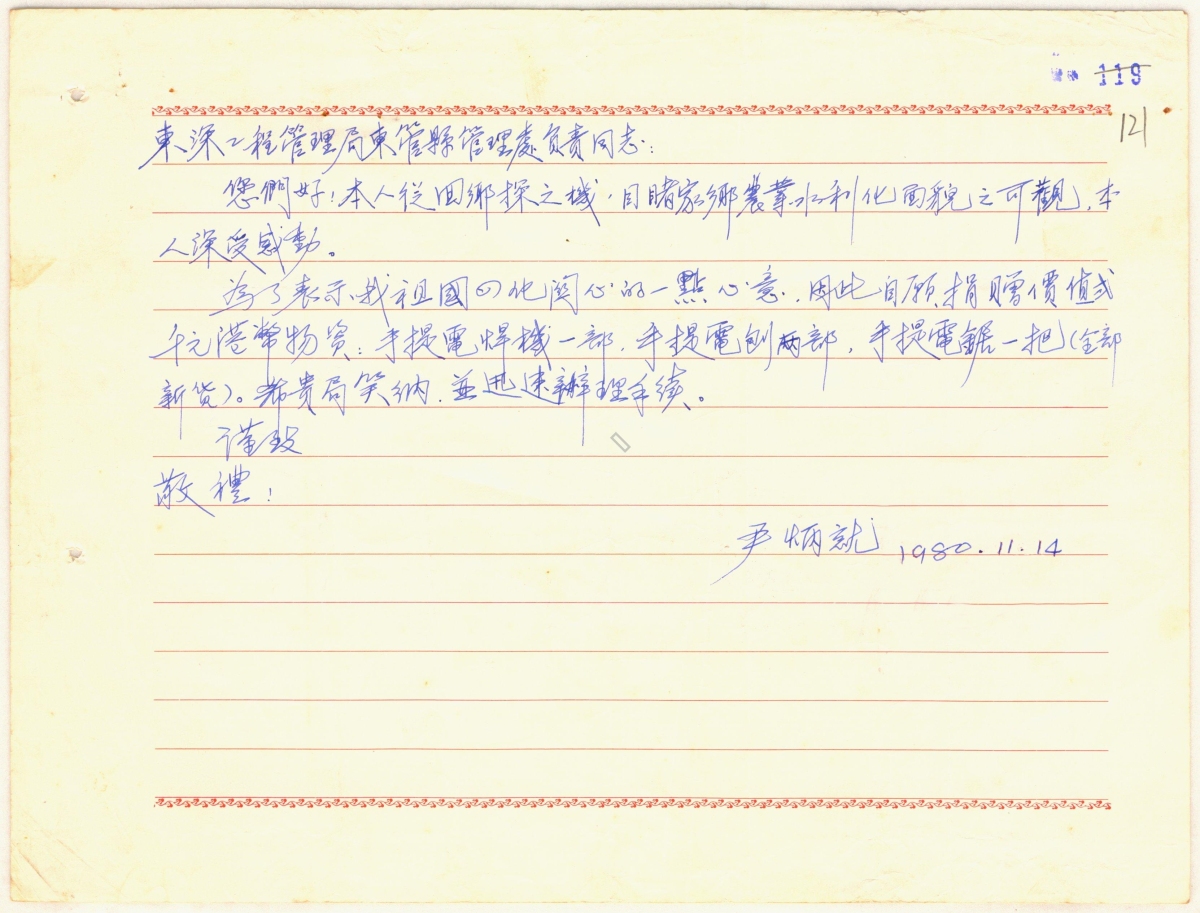 119
121
東深工程管理局東管縣管理處負責同志：
您們好！本人從回鄉探之機，目睹家鄉農業水利化面貌之可觀，本
人深受感動。
為了表示我祖國四化関心的一點心意，因此自願捐贈價值弍
千元港幣物资：手提電焊機一部，手提電刨两部，手提電鋸一把（全部
新货）。希貴局笑纳，並迅速辦理手续。
谨致
敬禮！
尹炳就 1980.11.14